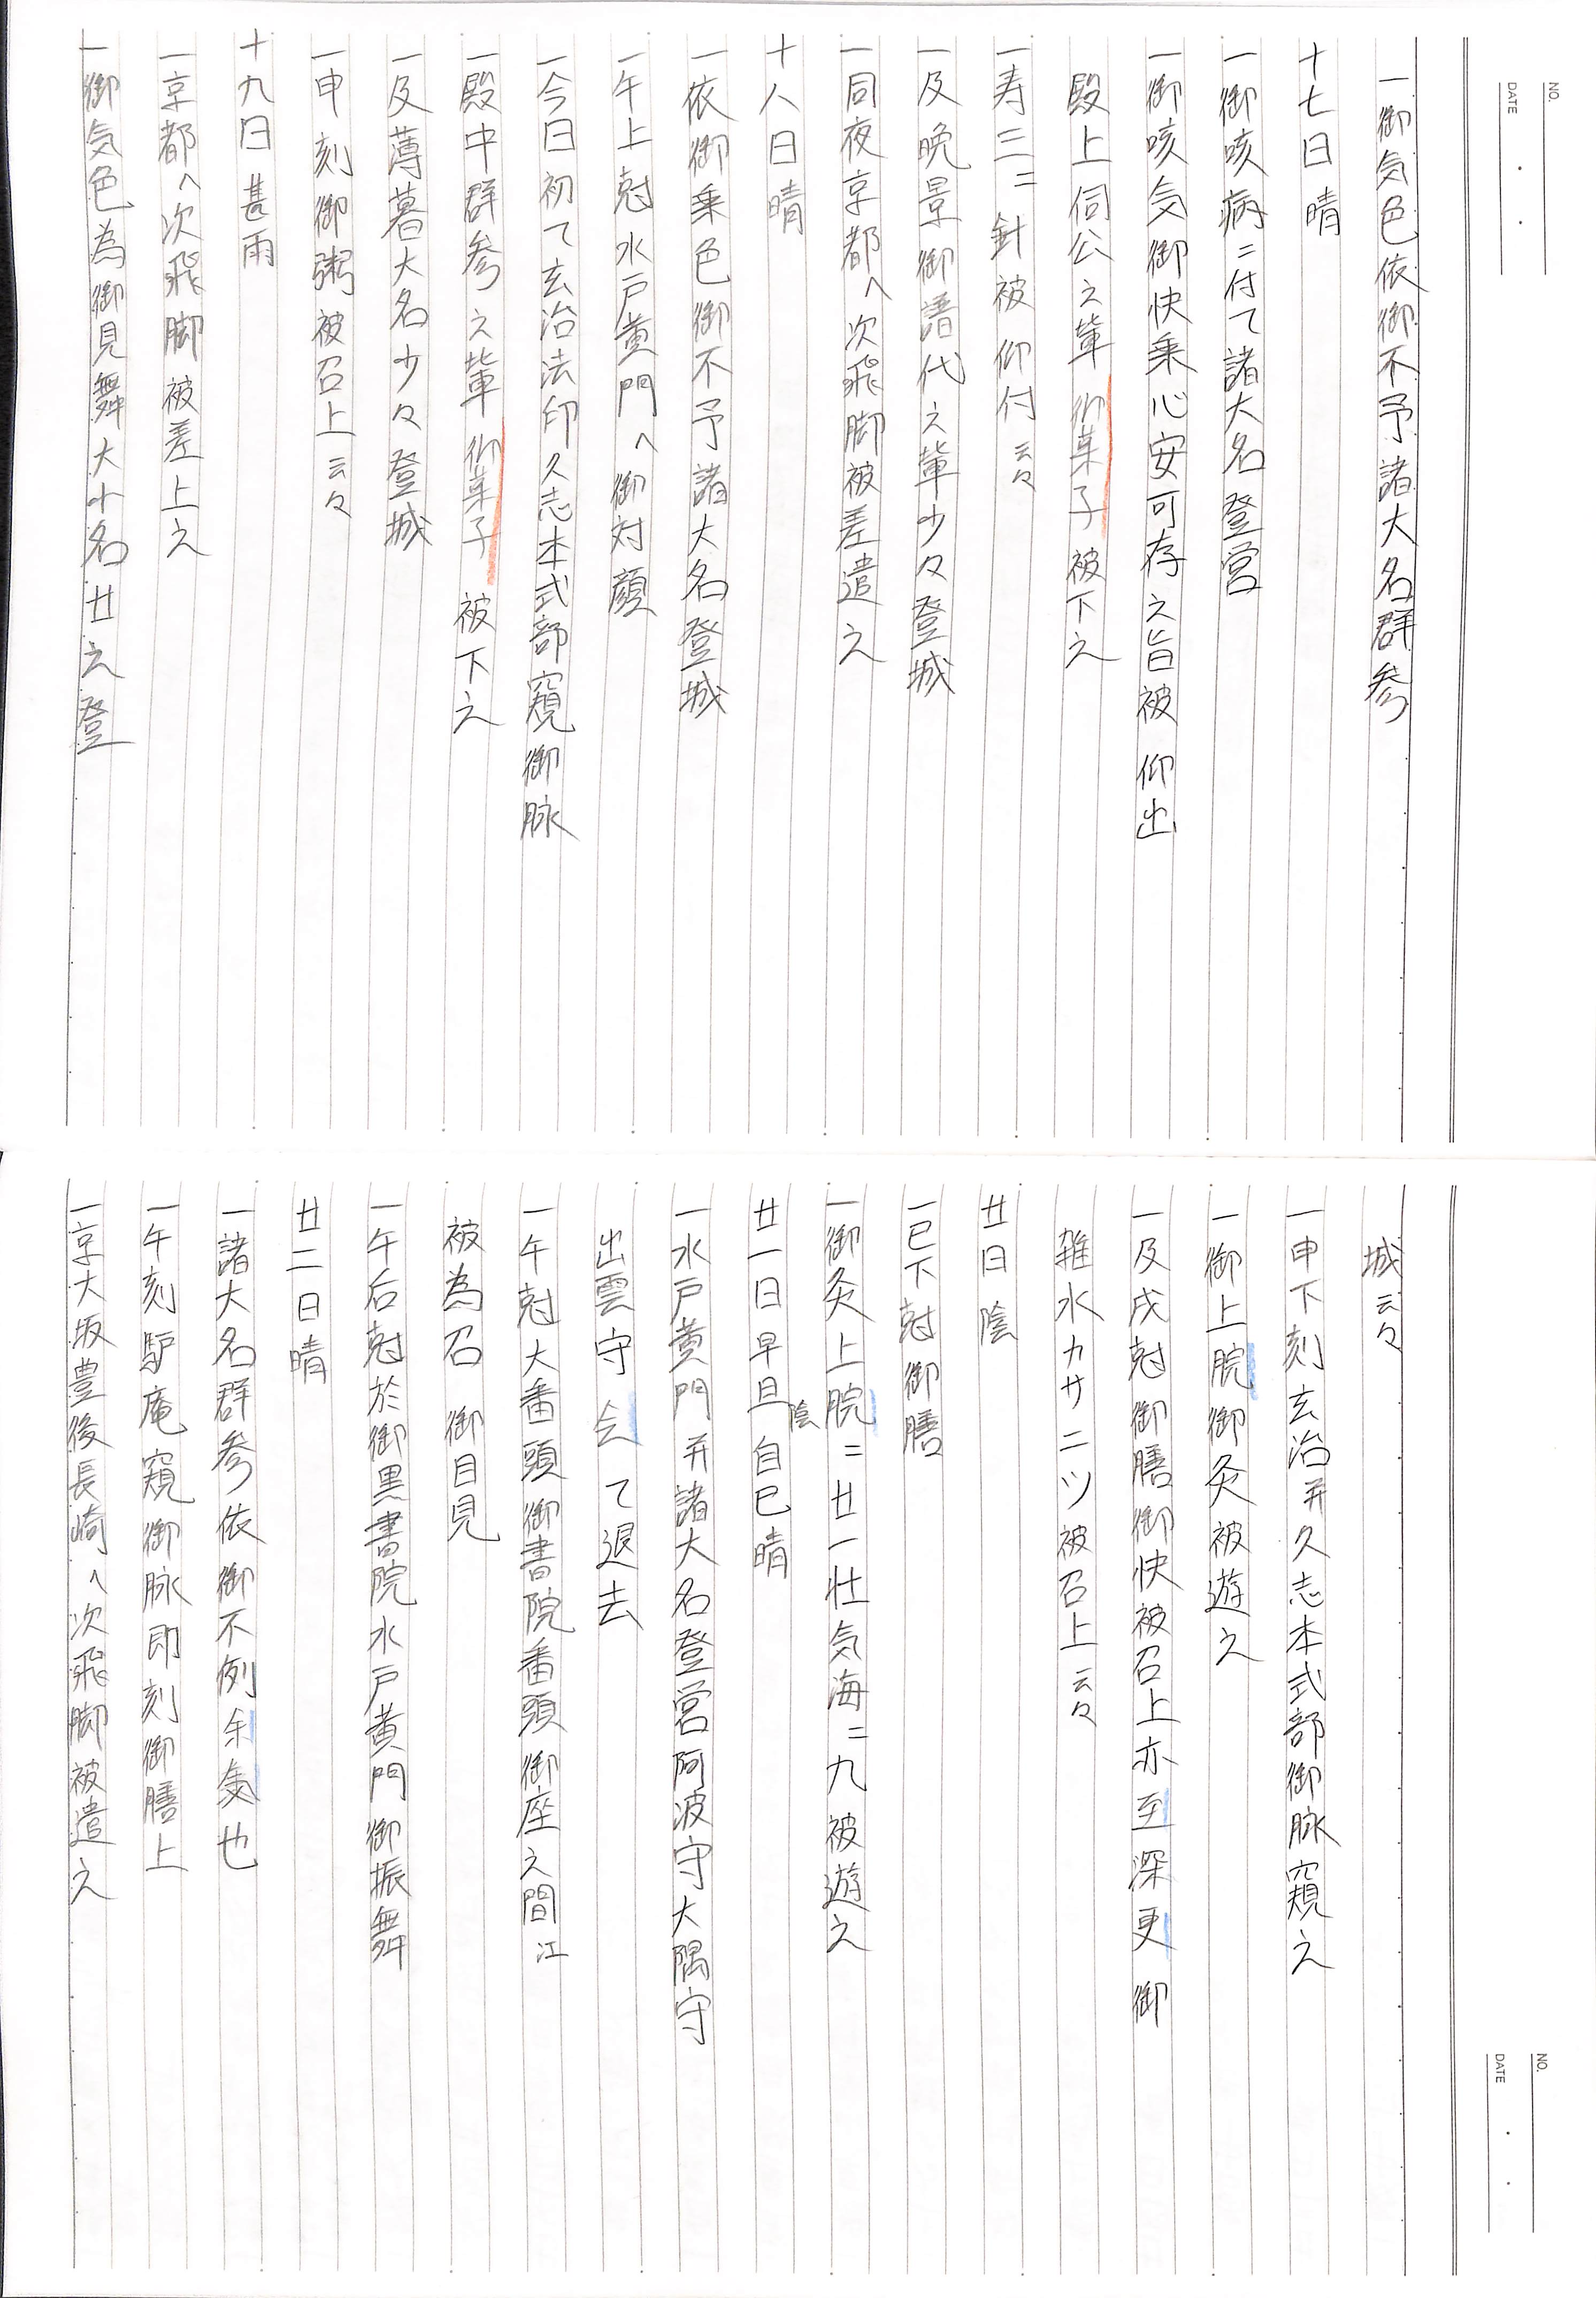 NO.
DATE
一御気色依御不予諸大名群参
十七日晴
一御咳病ニ付て諸大名登営
一御咳気御快乗心安可存之旨被 仰出
殿上伺公之輩御菓子被下之
一寿三ニ針被 仰付云々
一及晩景御譜代之輩少々登城
一同夜京都へ次飛脚被差遣之
十八日晴
一依御乗色御不予諸大名登城
一午上尅水戸黄門へ御対顔
一今日初て玄治法印久志本式部窺御脉
一殿中群参之輩 御菓子 被下之
一及薄暮大名少々登城
一申刻御粥被召上云々
十九日甚雨
一京都へ次飛脚被差上之
一御気色為御見舞大小名廿之登
NO.
DATE
城云々
一申下刻玄治并久志本式部御脉窺之
一御上脘御灸被遊之
一及戌尅御膳御快被召上亦至深更 御
雑水カサニツ被召上云々
廿日陰
一巳下尅御膳
一御灸上脘ニ廿一壮気海ニ九被遊之
廿一日早旦陰自巳晴
一水戸黄門并諸大名登営阿波守大隅守
出雲守会て退去
一午尅大番頭御書院番頭御座之間江
被為召 御目見
一午后尅於御黒書院水戸黄門御振舞
廿二日晴
一諸大名群参依御不例余気也
一午刻驢庵窺御脉即刻御膳上
一京大坂豊後長崎へ次飛脚被遣之